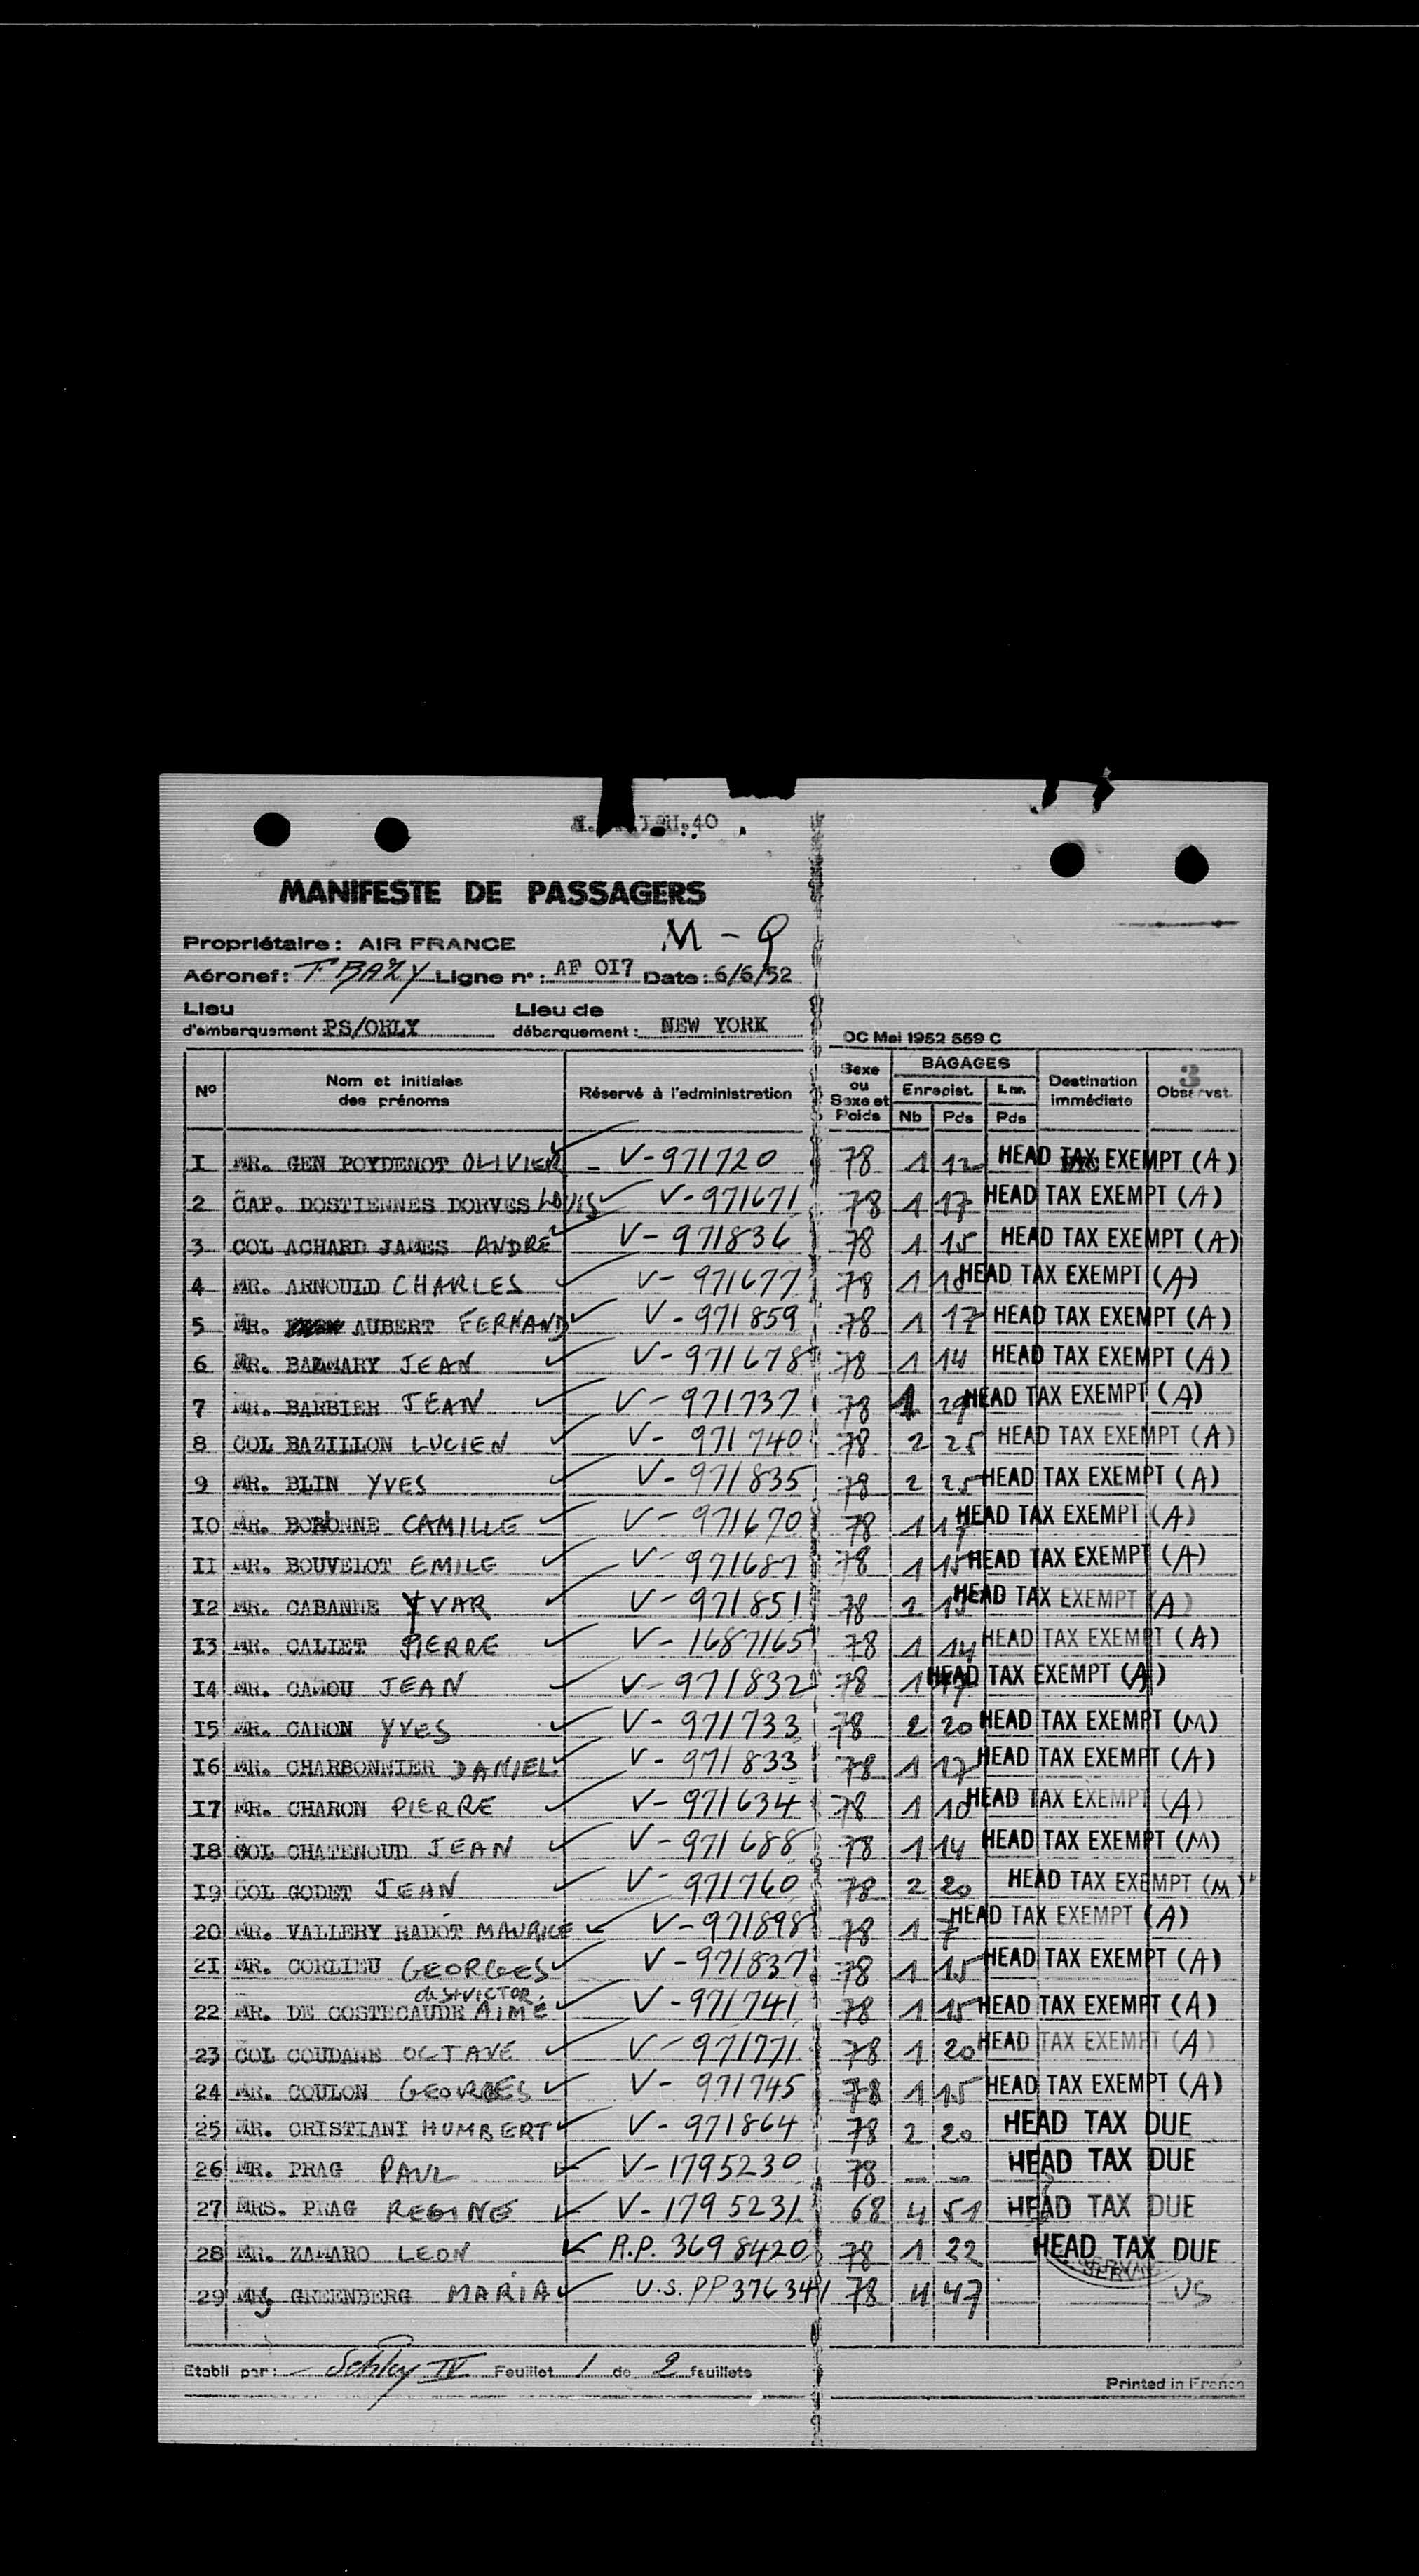 40
MANIFESTE DE PASSAGERS
M - Q
Propriétaire : AIR FRANCE
Aéronef : F BAZY Ligne n° : AF 017 Date : 6/6/52
Lieu d'embarquement : PS/ORLY Lieu de débarquement : NEW YORK
DC Mai 1952 559 C
N° Nom et initiales des prénoms Réservé à l'administration Sexe ou Sexe et Poids BAGAGES Enregist. Nb Pds Pds Destination immédiate Observat. 3
I MR. GEN POYDENOT OLIVIER - V-971720 78 1 12 HEAD TAX EXEMPT (A)
2 CAP. DOSTIENNES DORVES LOUIS V-971671 78 1 17 HEAD TAX EXEMPT (A)
3 COL ACHARD JAMES ANDRE V-971836 78 1 15 HEAD TAX EXEMPT (A)
4 MR. ARNOULD CHARLES V-971677 78 1 HEAD TAX EXEMPT (A)
5 MR. AUBERT FERNAND V-971859 78 1 17 HEAD TAX EXEMPT (A)
6 MR. BALMARY JEAN V-971678 78 1 14 HEAD TAX EXEMPT (A)
7 MR. BARBIER JEAN V-971737 78 1 29 HEAD TAX EXEMPT (A)
8 COL BAZILLON LUCIEN V-971740 78 2 25 HEAD TAX EXEMPT (A)
9 MR. BLIN YVES V-971835 78 2 25 HEAD TAX EXEMPT (A)
IO MR. CAMILLE V-971670 78 1 17 HEAD TAX EXEMPT (A)
II MR. BOUVELOT EMILE V-971687 78 1 15 HEAD TAX EXEMPT (A)
I2 MR. CABANNE YVAR V-971851 78 2 15 HEAD TAX EXEMPT (A)
I3 MR. CALLET PIERRE V-1687165 78 1 14 HEAD TAX EXEMPT (A)
I4 MR. CAMOU JEAN V-971832 78 1 HEAD TAX EXEMPT (A)
I5 MR. CARON YVES V-971733 78 2 20 HEAD TAX EXEMPT (M)
I6 MR. CHARBONNIER DANIEL V-971833 78 1 17 HEAD TAX EXEMPT (A)
I7 MR. CHARON PIERRE V-971634 78 1 10 HEAD TAX EXEMPT (A)
I8 COL CHATENOUD JEAN V-971688 78 1 14 HEAD TAX EXEMPT (M)
I9 COL GODET JEAN V-971760 78 2 20 HEAD TAX EXEMPT (M)
20 MR. VALLERY RADOT MAURICE V-971898 78 1 7 HEAD TAX EXEMPT (A)
2I MR. CORLIEU GEORGES V-971837 78 1 15 HEAD TAX EXEMPT (A)
de St VICTOR
22 MR. DE COSTECAUDE AIMÉ V-971741 78 1 15 HEAD TAX EXEMPT (A)
23 COL COUDANE OCTAVE V-971771 78 1 20 HEAD TAX EXEMPT (A)
24 MR. COULON GEORGES V-971745 78 1 15 HEAD TAX EXEMPT (A)
25 MR. CRISTIANI HUMBERT V-971864 78 2 20 HEAD TAX DUE
26 MR. PRAG PAUL V-1795230 78 - - HEAD TAX DUE
27 MRS. PRAG REGINE V-1795231 68 4 51 HEAD TAX DUE
28 MR. ZAMARO LEON R.P. 3698420 78 1 22 HEAD TAX DUE
29 GREENBERG MARIA U.S. PP 376341 78 4 47 US
Etabli par : Feuillet 1 de 2 feuillets
Printed in France